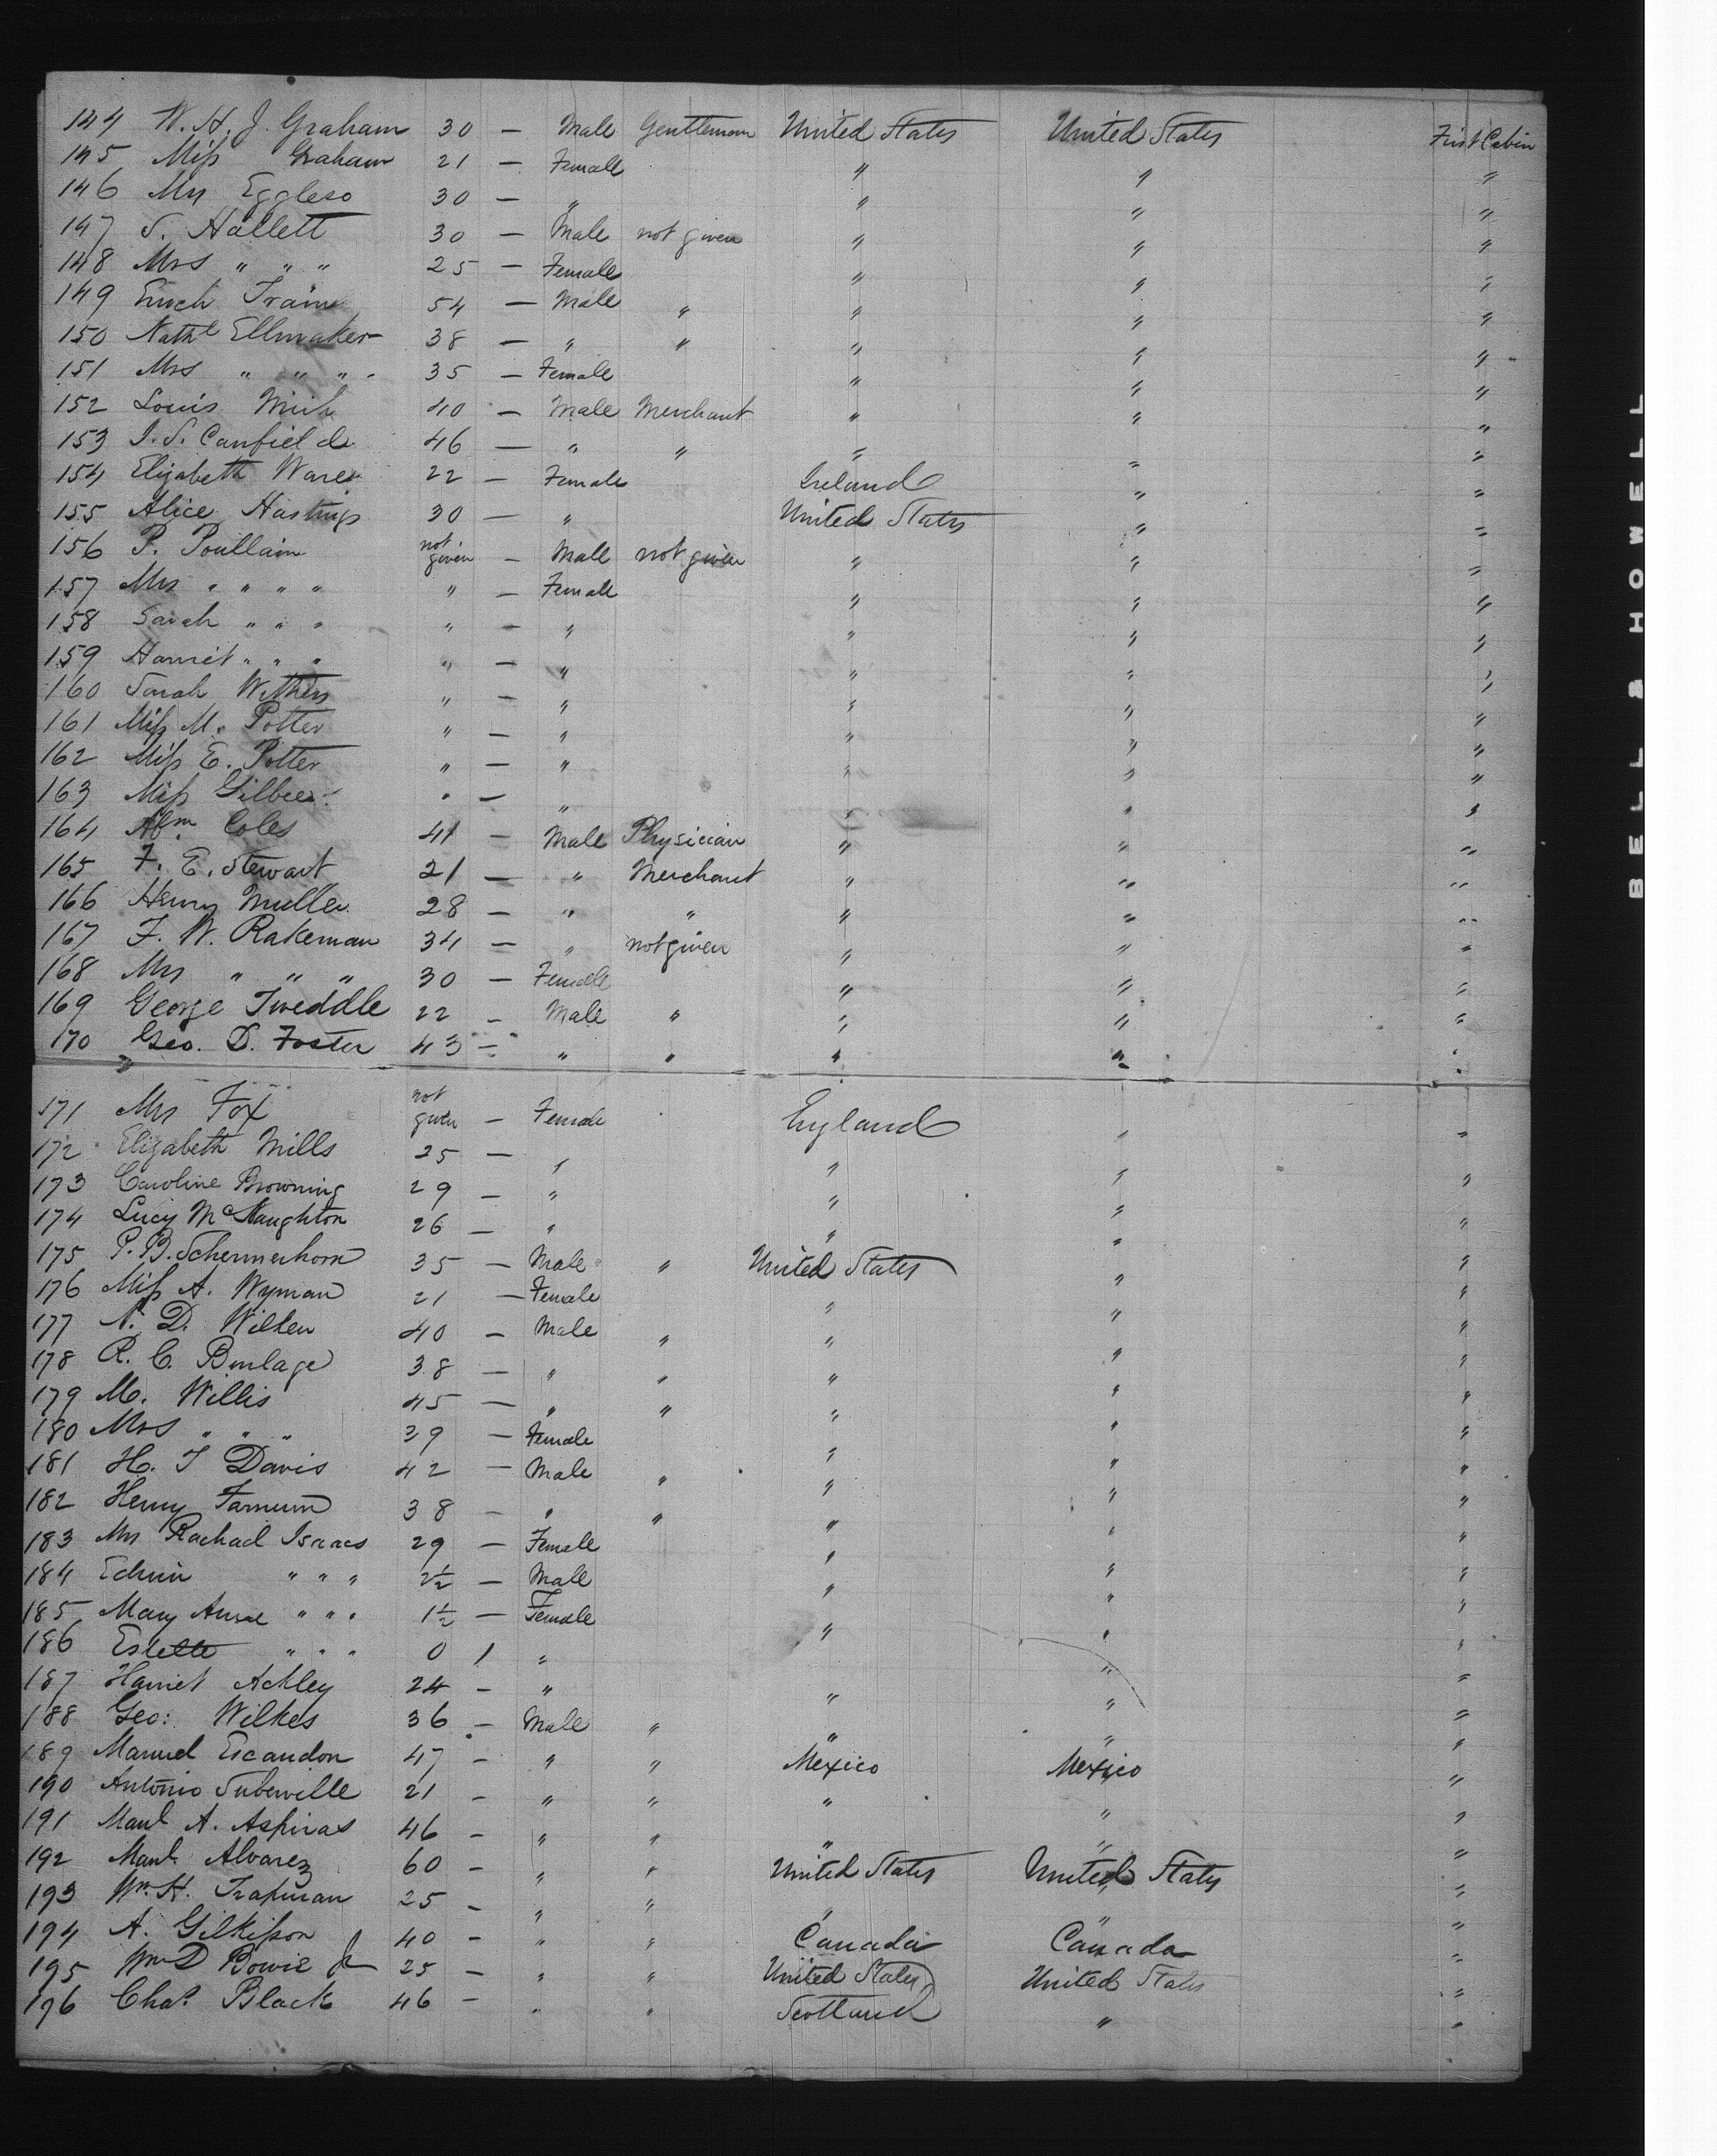 144 W. H. J. Graham 30 — Male Gentleman United States United States First Cabin
145 Miss Graham 21 — Female " " "
146 Mrs Eggleso 30 — " " " "
147 S. Hallett 30 — Male not given " " "
148 Mrs " " " 25 — Female " " "
149 Enoch Train 54 — Male " " " "
150 Nathl Ellmaker 38 — " " " " "
151 Mrs " " " " 35 — Female " " "
152 Louis 40 — Male Merchant " " "
153 I. S. Canfield 46 — " " " " "
154 Elizabeth Ware 22 — Female Ireland " "
155 Alice Hastings 30 — " United States " "
156 P. Poullain not given — Male not given " " "
157 Mrs " " " " " — Female " " "
158 Sarah " " " " — " " " "
159 Harriet " " " " — " " " "
160 Sarah Withers " — " " " "
161 Miss M. Potter " — " " " "
162 Miss E. Potter " — " " " "
163 Miss " — " " " "
164 Abm Coles 41 — Male Physician " " "
165 F. E. Stewart 21 — " Merchant " " "
166 Henry Muller 28 — " " " " "
167 F. W. Rakeman 34 — " not given " " "
168 Mrs " " " 30 — Female " " "
169 George Tweddle 22 — Male " " " "
170 Geo. D. Foster 43 — " " " " "
171 Mrs Fox not given — Female England " "
172 Elizabeth Mills 25 — " " " "
173 Caroline Browning 29 — " " " "
174 Lucy McNaughton 26 — " " " "
175 P. B. Schermerhorn 35 — Male " United States " "
176 Miss A. Wyman 21 — Female " " "
177 N. D. Wilken 40 — Male " " " "
178 R. C. Burlage 38 — " " " " "
179 M. Willis 45 — " " " " "
180 Mrs " " " 39 — Female " " "
181 H. T Davis 42 — Male " " " "
182 Henry Farnum 38 — " " " " "
183 Mrs Rachael Isaacs 29 — Female " " "
184 Edwin " " " 2½ — Male " " "
185 Mary Anne " " " 1½ — Female " " "
186 Eslette " " " 0 1 " " "
187 Harriet Ackley 24 — " " " "
188 Geo: Wilkes 36 — Male " " " "
189 Manuel Escandon 47 — " " Mexico Mexico "
190 Antonio Suberville 21 — " " " " "
191 Manl A. Aspiras 46 — " " " " "
192 Manl. Alvarez 60 — " " United States United States "
193 Wm. H. Trapman 25 — " " " " "
194 A. Gilkisson 40 — " " Canada Canada "
195 Wm D Bowie Jr 25 — " " United States United States "
196 Chas. Black 46 — " " Scotland " "
BELL & HOWELL